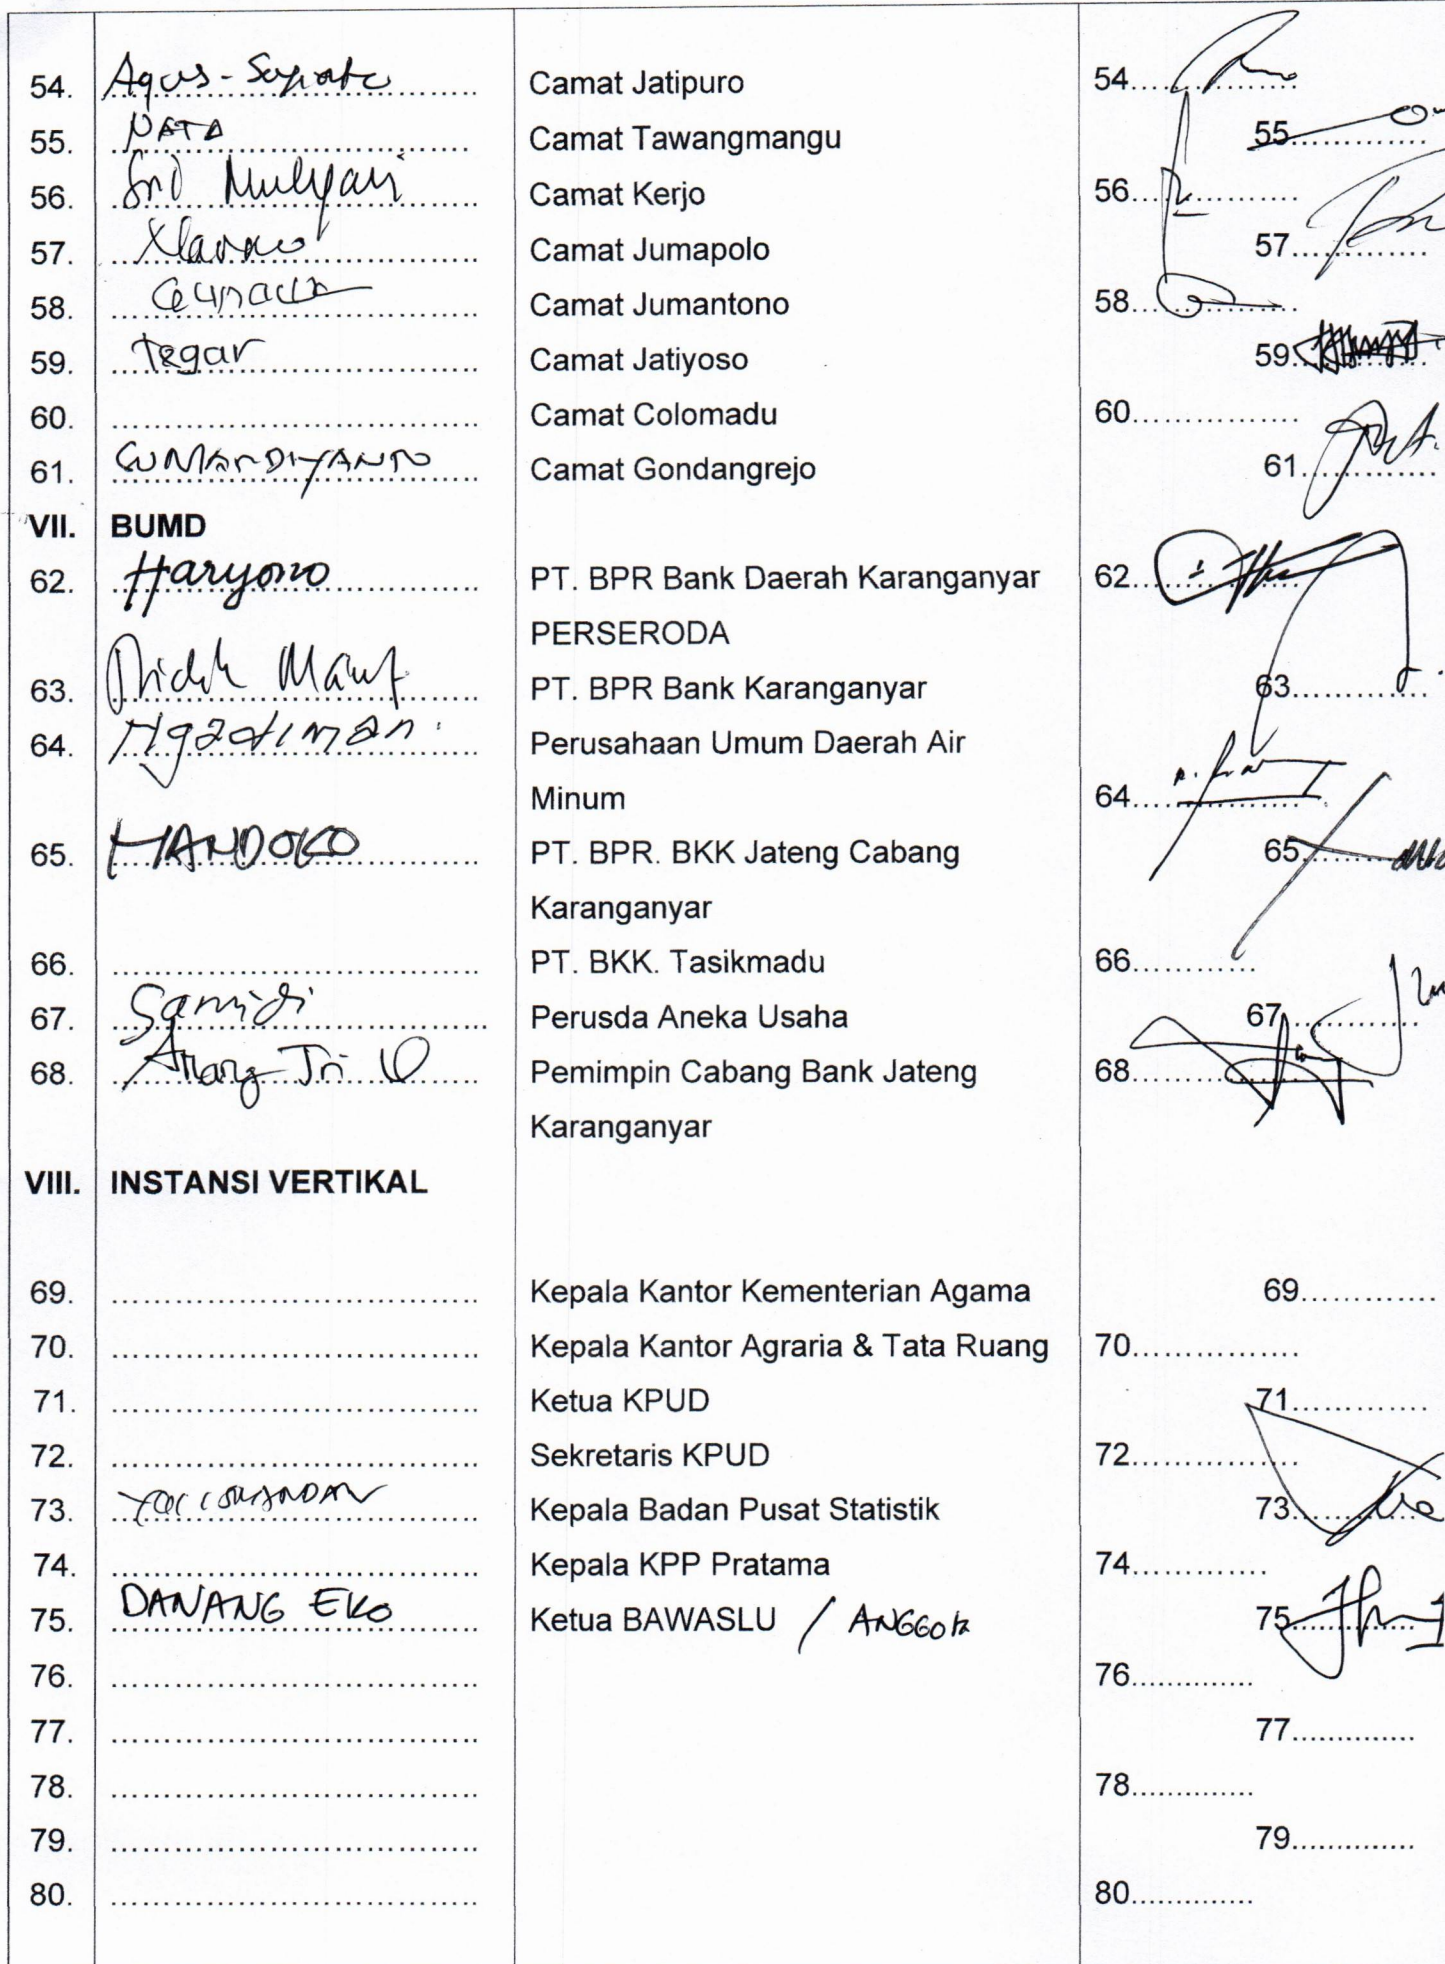 54. Agus - Suprapto Camat Jatipuro 54...............
55. NATA Camat Tawangmangu 55...............
56. Sri Mulyani Camat Kerjo 56...............
57. Camat Jumapolo 57...............
58. Gunawan Camat Jumantono 58...............
59. Tegar Camat Jatiyoso 59...............
60. ................................. Camat Colomadu 60...............
61. SUMARDIYANTO Camat Gondangrejo 61...............
VII. BUMD
62. Haryono PT. BPR Bank Daerah Karanganyar 62...............
PERSERODA
63. PT. BPR Bank Karanganyar 63...............
64. Ngadiman. Perusahaan Umum Daerah Air
Minum 64...............
65. HANDOKO PT. BPR. BKK Jateng Cabang 65...............
Karanganyar
66. ................................. PT. BKK. Tasikmadu 66............
67. Samidi Perusda Aneka Usaha 67.............
68. Anang Tri Pemimpin Cabang Bank Jateng 68...............
Karanganyar
VIII. INSTANSI VERTIKAL
69. ................................. Kepala Kantor Kementerian Agama 69.............
70. ................................. Kepala Kantor Agraria & Tata Ruang 70...............
71. ................................. Ketua KPUD 71.............
72. ................................. Sekretaris KPUD 72...............
73. Kepala Badan Pusat Statistik 73.............
74. ................................. Kepala KPP Pratama 74............
75. DANANG EKO Ketua BAWASLU / ANGGOTA 75.............
76. ................................. 76.............
77. ................................. 77.............
78. ................................. 78.............
79. ................................. 79.............
80. ................................. 80.............